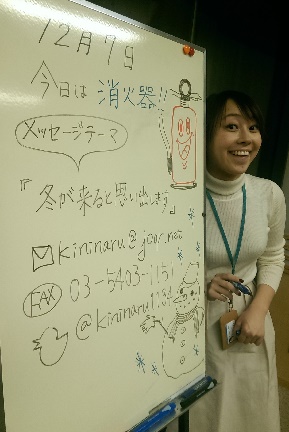 12月7日
今日は 消火器!!
メッセージテーマ
『冬が来ると思い出します』
kininaru@jcwr.net
FAX 03-5403-1151
@kininaru1134